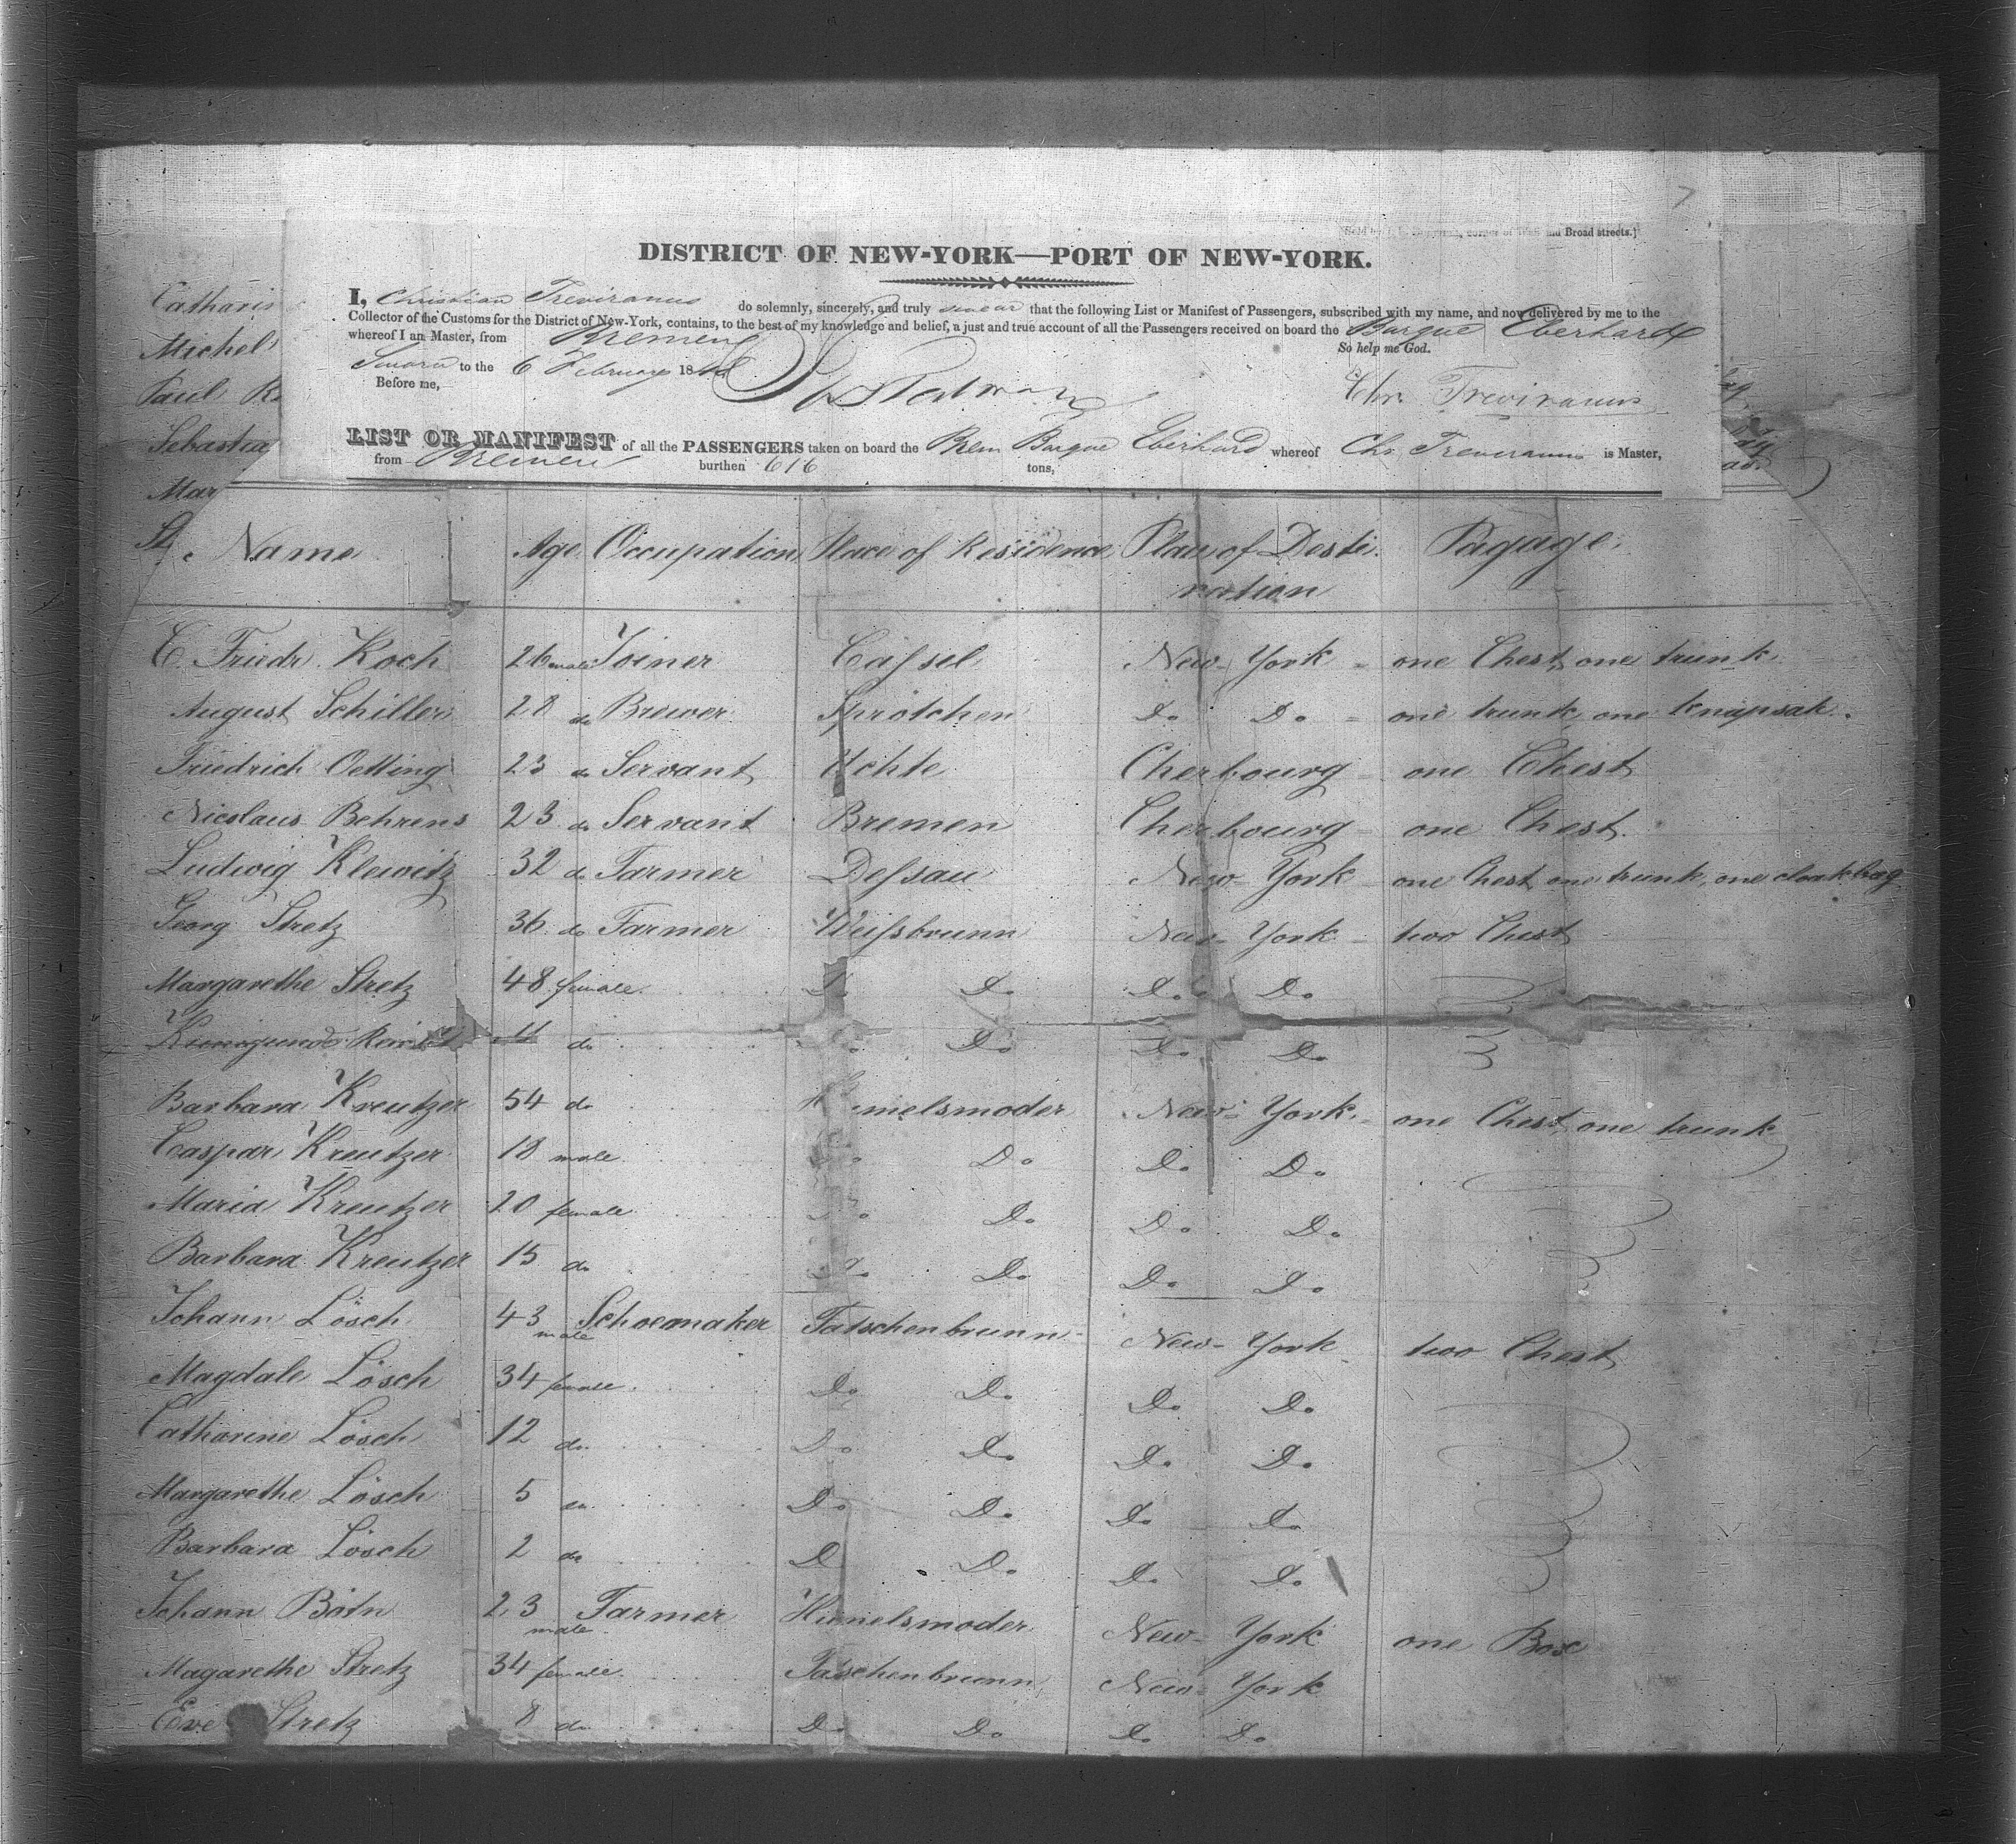 7
and Broad streets.]
DISTRICT OF NEW-YORK—PORT OF NEW-YORK.
I, Christian Treviranus do solemnly, sincerely, and truly swear that the following List or Manifest of Passengers, subscribed with my name, and now delivered by me to the
Collector of the Customs for the District of New-York, contains, to the best of my knowledge and belief, a just and true account of all the Passengers received on board the Barque Eberhard
whereof I am Master, from Bremen
So help me God.
Sworn to the 6 February 18
Before me,
Chr. Treviranus
LIST OR MANIFEST of all the PASSENGERS taken on board the Brem Barque Eberhard whereof Chr. Treviranus is Master,
from Bremen burthen 616 tons,
Catharis
Michel
Paul
Sebastia
Mar
Name Age Occupation Place of Residence Place of Desti-
nation Pagage.
C. Friedr. Koch 26 male Joiner Cassel New-York one Chest, one trunk
August Schiller 28 do Brewer Sprötchen Do Do one trunk, one knapsak.
Friedrich Oetting 23 do Servant Uchte Cherbourg one Chest
Nicolaus Behrens 23 do Servant Bremen Cherbourg one Chest.
Ludwig Klewitz 32 do Farmer Dessau New-York one Chest, one trunk, one cloakbag
Georg Stretz 36 do Farmer Weissbrunn New-York two Chest
Margarethe Stretz 48 female Do Do Do Do
do Do Do Do
Barbara Kreutzer 54 do melsmoder New-York one Chest, one trunk
Caspar Kreutzer 18 male Do Do Do
Maria Kreutzer 20 female Do Do Do
Barbara Kreutzer 15 do Do Do Do Do
Johann Lösch 43 male Schoemaker Tatschenbrunn New-York two Chest
Magdale Lösch 34 female Do Do Do Do
Catharine Lösch 12 do Do Do Do Do
Margarethe Lösch 5 do Do Do Do Do
Barbara Lösch 2 do Do Do Do Do
Johann 23 male Farmer Humelsmoder New-York one Box
Magarethe Stretz 34 female Tatschenbrunn New-York
Eve Stretz 8 do Do Do Do Do